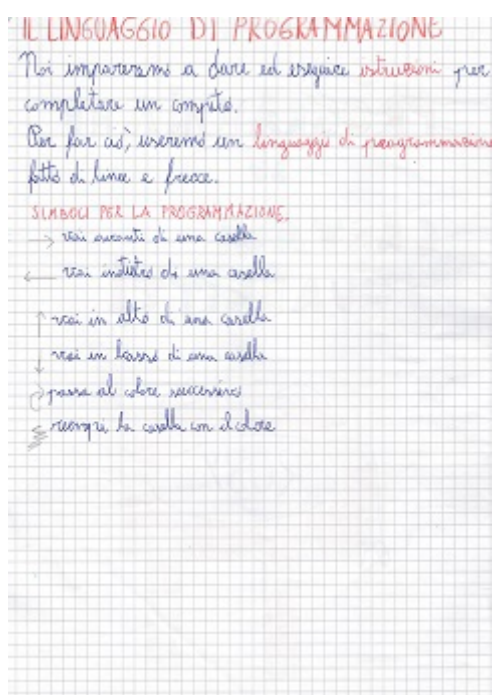 IL LINGUAGGIO DI PROGRAMMAZIONE
Noi impareremo a dare ed eseguire istruzioni per
completare un compito.
Per far ciò, useremo un linguaggio di programmazione
fatto di linee e frecce.
SIMBOLI PER LA PROGRAMMAZIONE.
→ vai avanti di una casella
← vai indietro di una casella
↑ vai in alto di una casella
↓ vai in basso di una casella
passa al colore successivo
riempi la casella con il colore